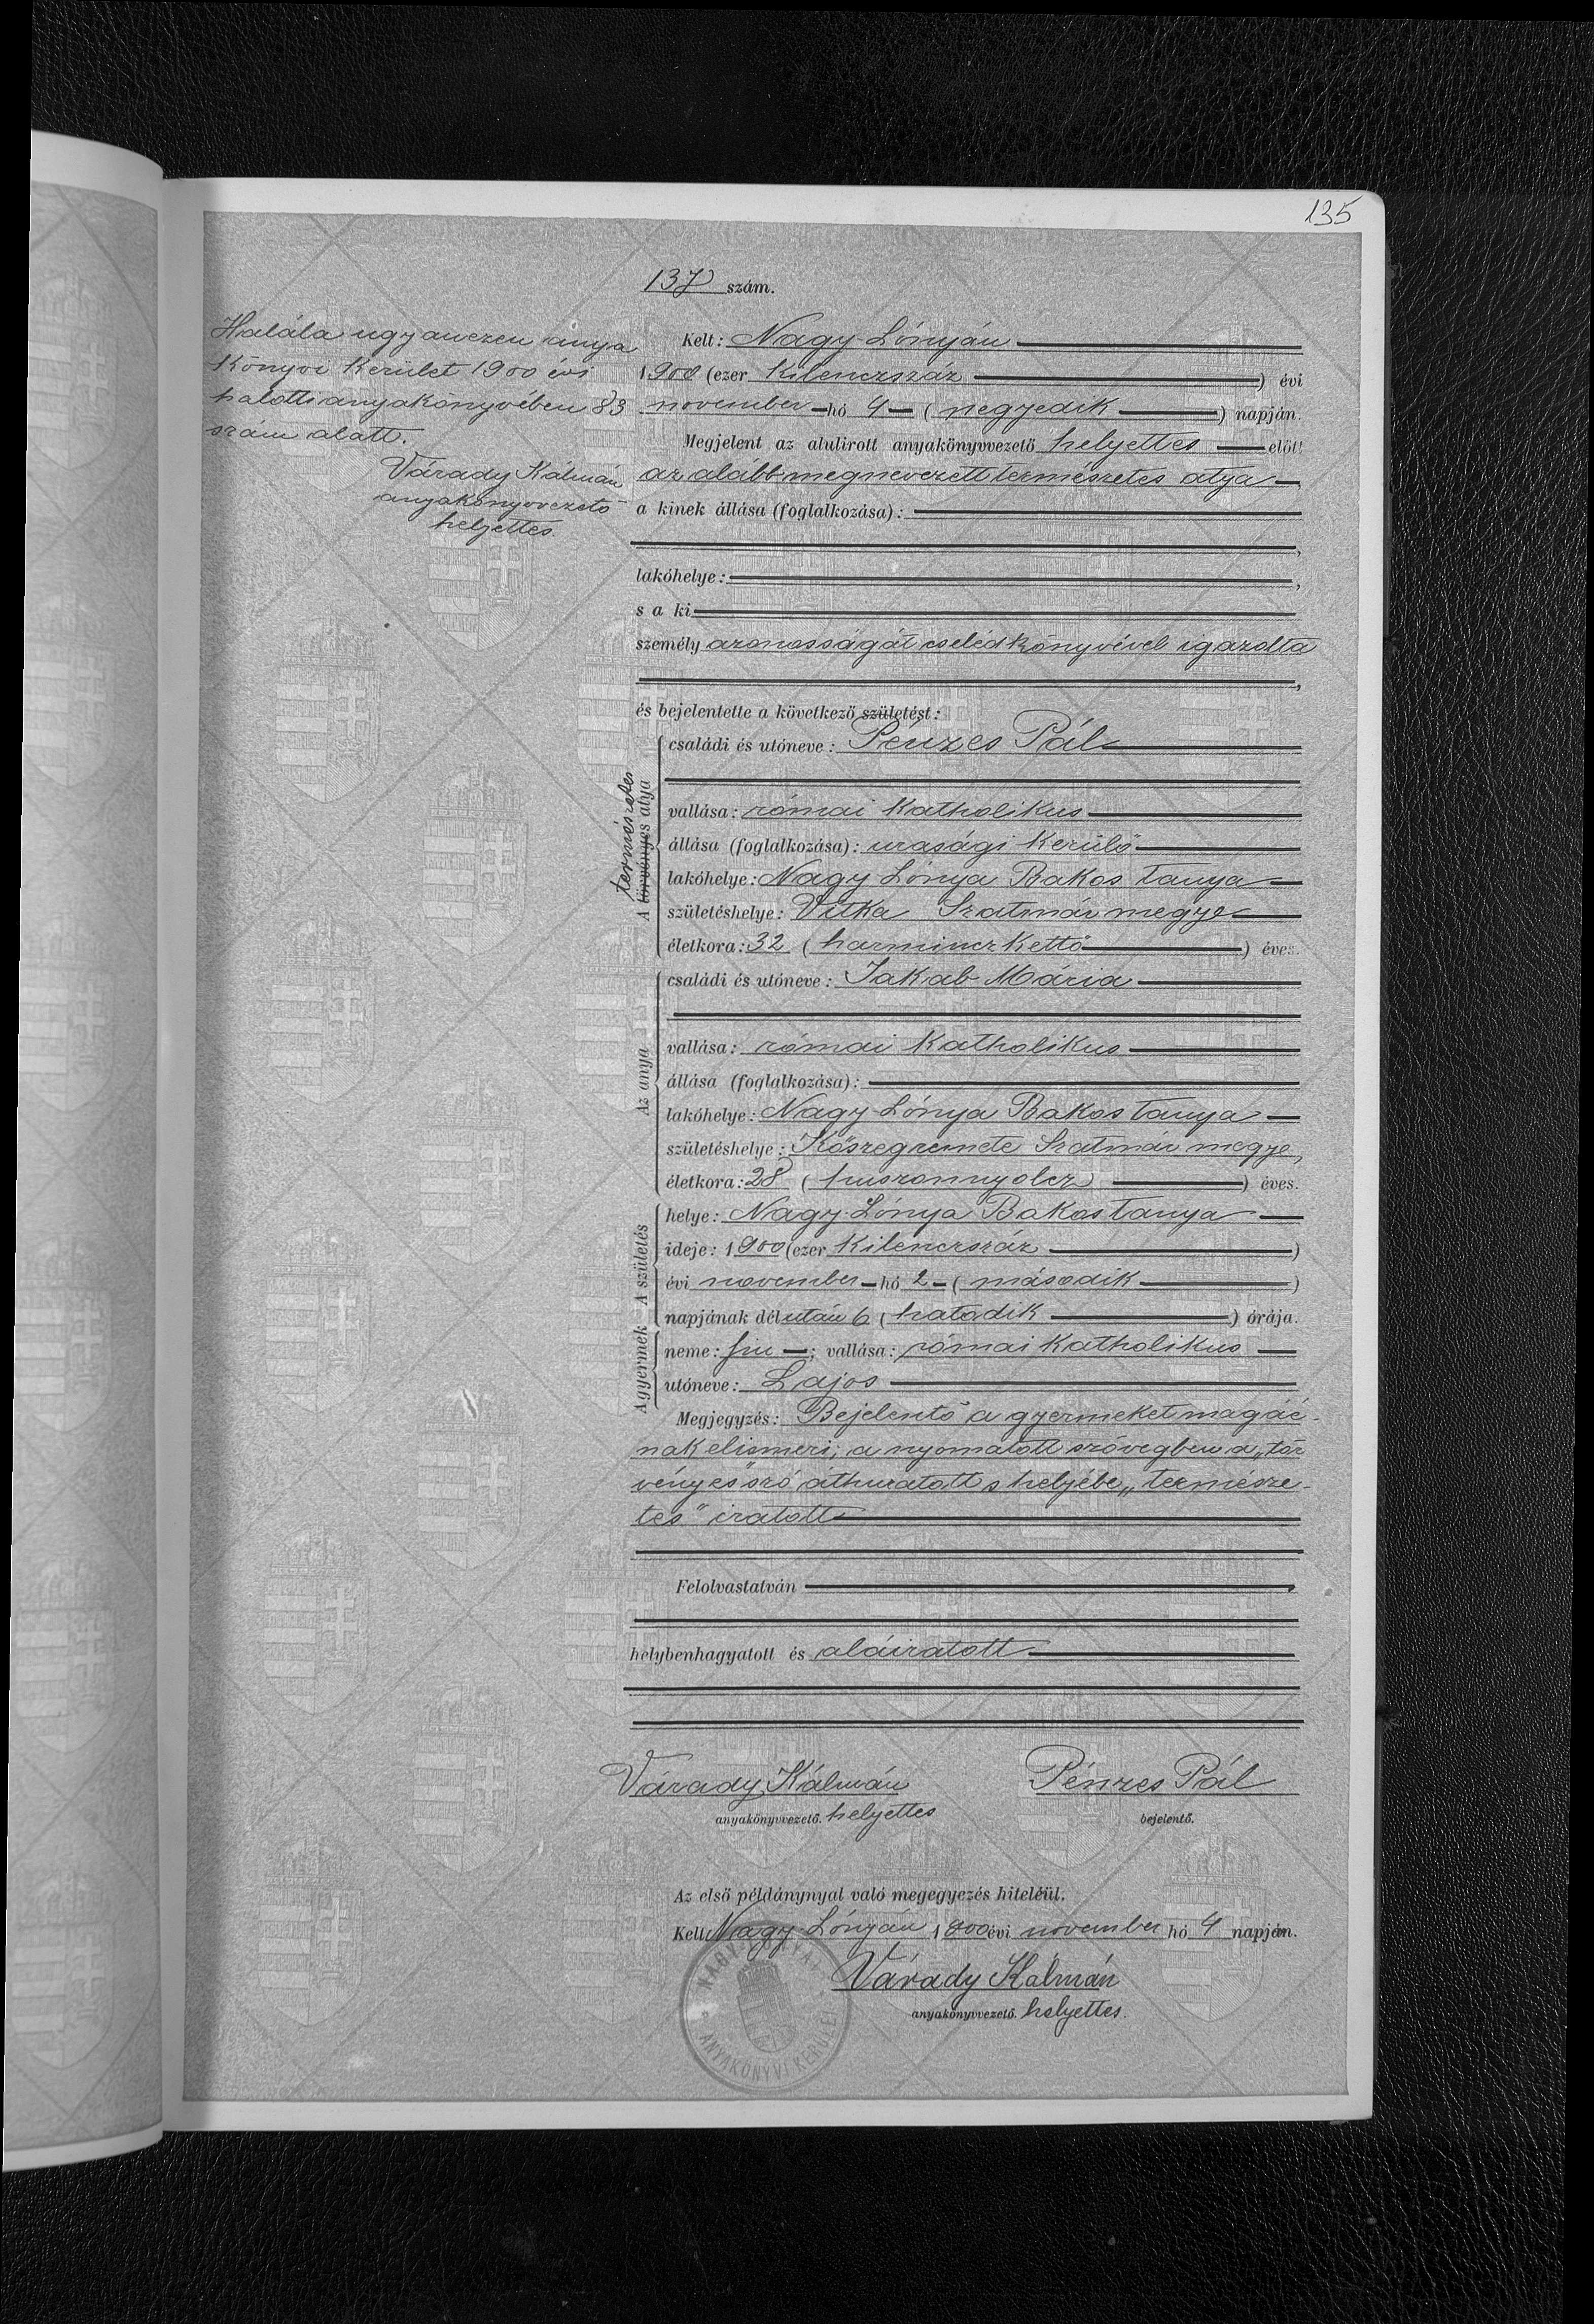 135
137 szám.
Halála ugyanezen anya
könyvi kerület 1900 évi
halotti anyakönyvében 83
szám alatt.
Várady Kálmán
anyakönyvvezető
helyettes
Kelt: Nagy Lónyán
1900 (ezer kilenczszáz) évi
november hó 4 (negyedik) napján.
Megjelent az alulirott anyakönyvvezető helyettes előtt
az alább megnevezett természetes atya
a kinek állása (foglalkozása):
,
lakóhelye: ,
s a ki
személy azonosságát cselédkönyvével igazolta
,
és bejelentette a következő születést:
A törvényes atya
természetes
családi és utóneve: Pénzes Pál
vallása: római katholikus
állása (foglalkozása): urasági kerülő
lakóhelye: Nagy Lónya Bakos tanya
születéshelye: Vitka Szatmár megye
életkora: 32 (harminczkettő) éves.
Az anya
családi és utóneve: Jakab Mária
vallása: római katholikus
állása (foglalkozása):
lakóhelye: Nagy Lónya Bakos tanya
születéshelye: Kőszegremete Szatmár megye,
életkora: 28 (huszonnyolcz) éves.
A születés
helye: Nagy Lónya Bakos tanya
ideje: 1900 (ezer kilenczszáz)
évi november hó 2 (második)
napjának délután 6 (hatodik) órája.
A gyermek
neme: fiu ; vallása: római katholikus
utóneve: Lajos
Megjegyzés: Bejelentő a gyermeket magáé-
nak elismeri; a nyomatott szövegben a „tör
vényes" szó áthuzatott s helyébe „természe-
tes" iratott
Felolvastatván ,
helybenhagyatott és aláiratott
Várady Kálmán
anyakönyvvezető. helyettes
Pénzes Pál
bejelentő.
Az első példánynyal való megegyezés hiteléül.
Kelt Nagy Lónyán 1900 évi november hó 4 napján.
Várady Kálmán
anyakönyvvezető. helyettes.
ANYAKÖNYVI KERÜLET